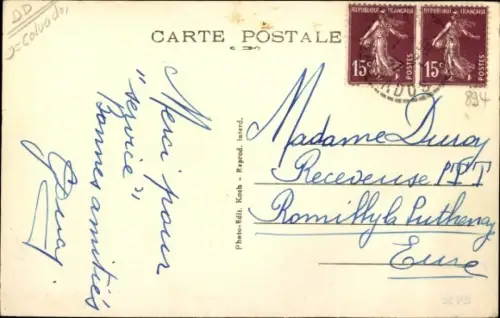 DD
= Calvados
CARTE POSTALE
REPUBLIQUE FRANÇAISE
15c POSTES
REPUBLIQUE FRANÇAISE
15c POSTES
894
Merci pour
"service"
Bonnes amitiés
Photo-Edit. Koch - Reprod. Interd.
Madame Duroy
Receveuse PTT
Romilly la Puthenay
Eure